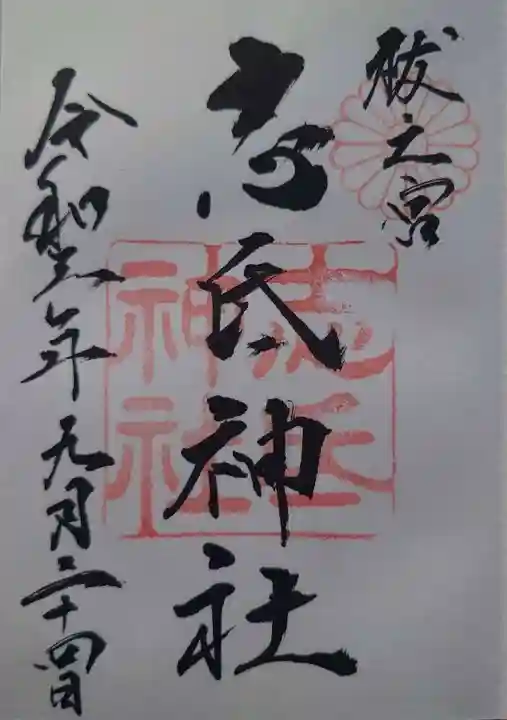 祓之宮
志氐神社
志氐
神社
令和三年九月二十四日